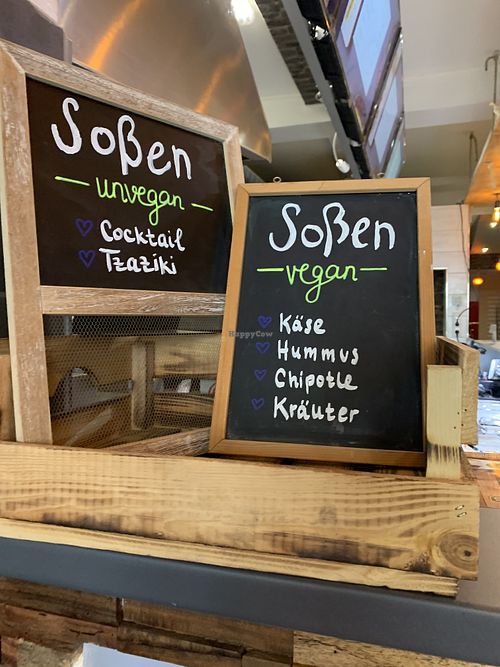 Soßen
unvegan
Cocktail
Tzaziki
Soßen
vegan
Käse
Hummus
Chipotle
Kräuter
HappyCow